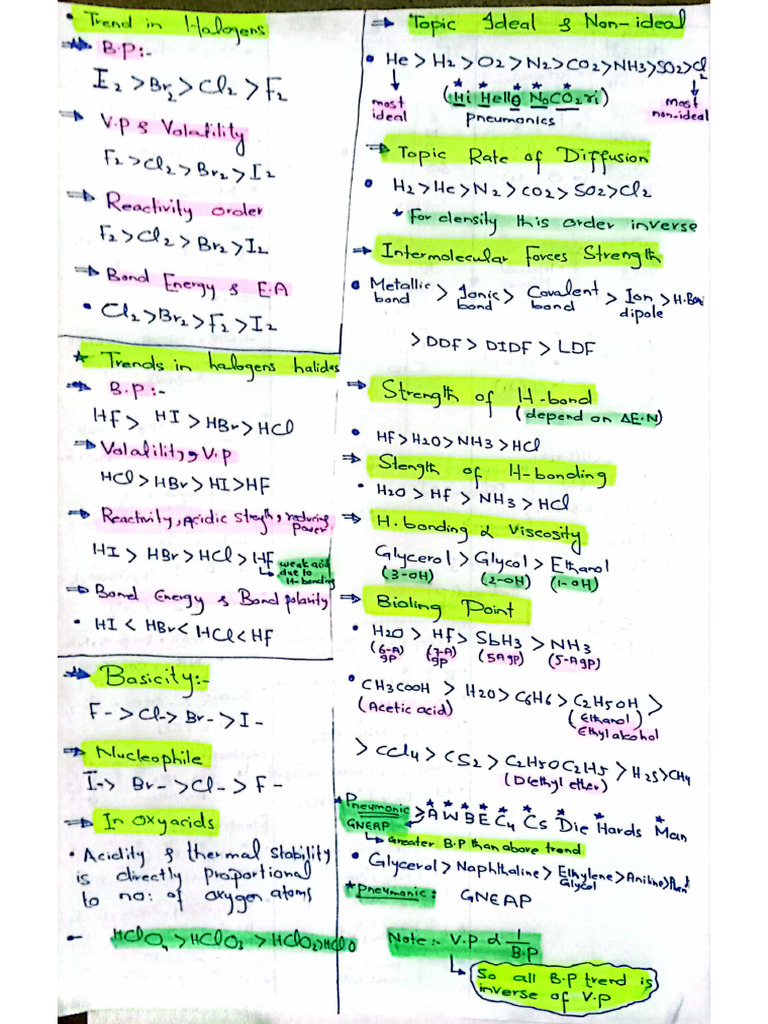 Trend in Halogens
B.P:-
I2 > Br2 > Cl2 > F2
V.P & Volatility
F2 > Cl2 > Br2 > I2
Reactivity order
F2 > Cl2 > Br2 > I2
Bond Energy & E.A
Cl2 > Br2 > F2 > I2
Trends in halogens halides
B.P:-
HF > HI > HBr > HCl
Volatility, V.P
HCl > HBr > HI > HF
Reactivity, Acidic Stregth, reducing
power
HI > HBr > HCl > HF
weak acid
due to
H-bonding
Bond Energy & Bond polarity
HI < HBr < HCl < HF
Basicity:-
F- > Cl- > Br- > I-
Nucleophile
I- > Br- > Cl- > F-
In Oxyacids
Acidity & thermal stability
is directly proportional
to no: of oxygen atoms
HClO4 > HClO2 > HClO2 > HClO
Topic Ideal & Non-ideal
He > H2 > O2 > N2 > CO2 > NH3 > SO2 > Cl2
most
ideal
(Hi Hello NoCO2ri)
pneumonics
most
non-ideal
Topic Rate of Diffusion
H2 > He > N2 > CO2 > SO2 > Cl2
* For density this order inverse
Intermolecular Forces Strength
Metallic bond > Ionic bond > Covalent bond > Ion dipole > H.Bon
> DDF > DIDF > LDF
Strength of H-bond
(depend on ΔE.N)
HF > H2O > NH3 > HCl
Stength of H-bonding
H2O > HF > NH3 > HCl
H.bonding α Viscosity
Glycerol > Glycol > Ethanol
(3-OH) (2-OH) (1-OH)
Bioling Point
H2O > HF > SbH3 > NH3
(6-A gp) (7-A gp) (5A gp) (5-A gp)
CH3COOH > H2O > C6H6 > C2H5OH >
(Acetic acid) (Ethanol)
Ethylalcohol
> CCl4 > CS2 > C2H5OC2H5 > H2S > CH4
(Diethyl ether)
Pneumonic
GNEAP
A W B E C4 Cs Die Hards Man
Greater B.P than above trend
Glycerol > Naphthaline > Ethylene Glycol > Aniline >
pneumonic: GNEAP
Note:- V.P α 1/B.P
So all B.P trend is
inverse of V.P